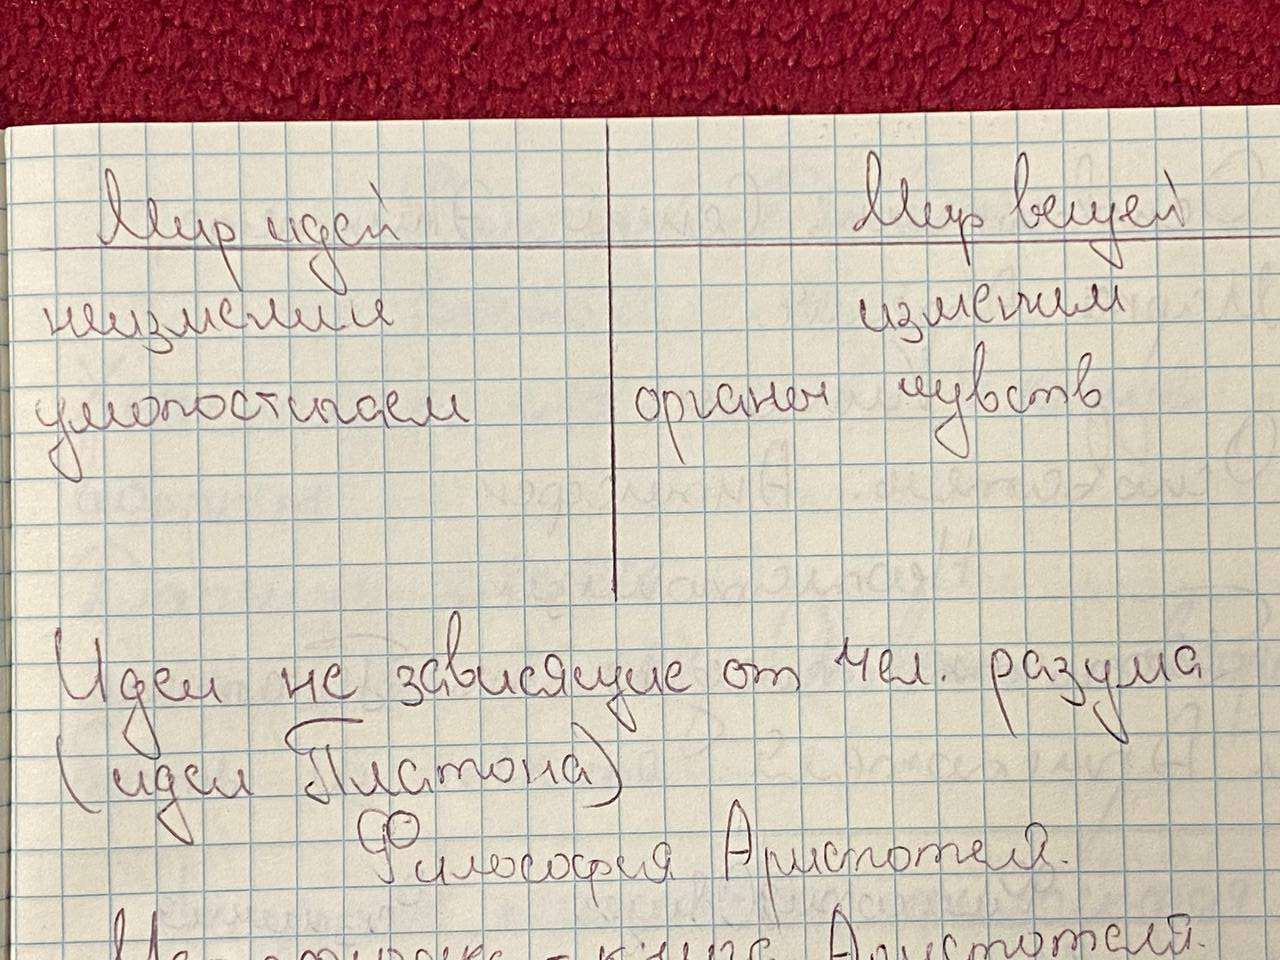 Мир идей Мир вещей
неизменим изменим
умопостигаем органом чувств
Идеи не зависящие от чел. разума
(идеи Платона)
Философия Аристотеля.
- книга Аристотеля.